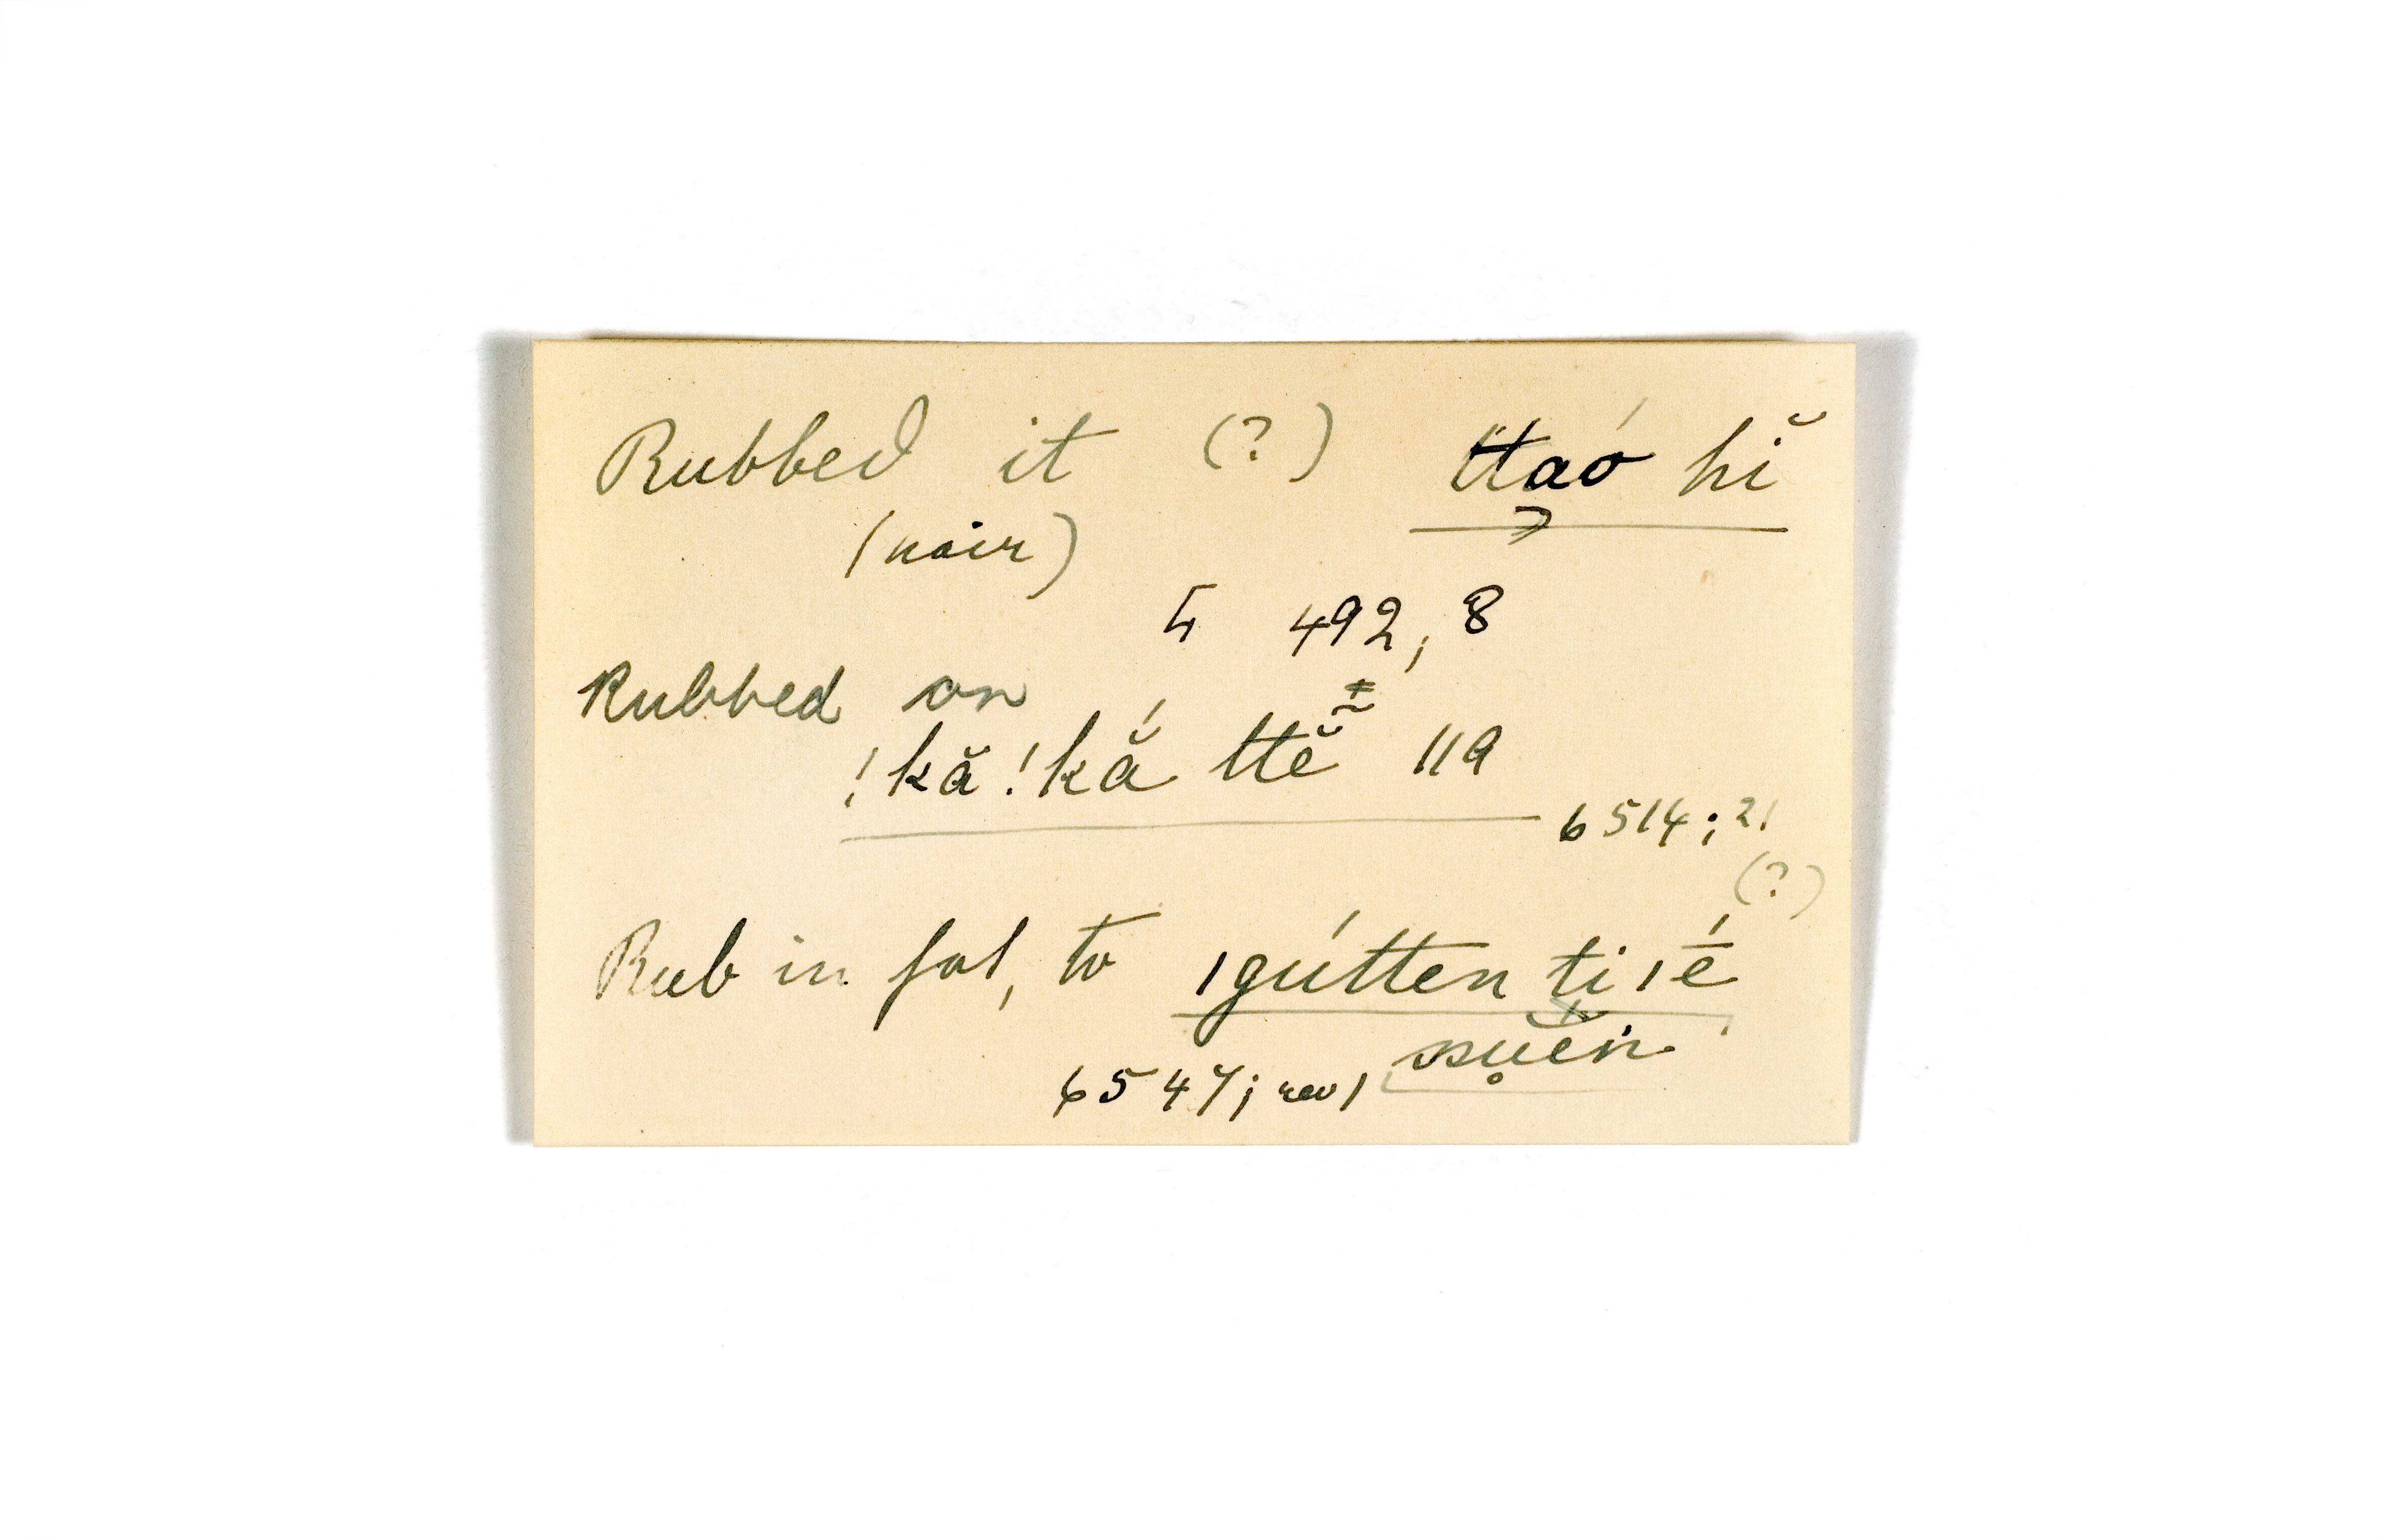 Rubbed it (?) ttaó hĭ
(hair)
492, 8
Rubbed on
!kă!kắ ttĕ ǁa
6514; 21
(?)
Rub in fat, to ǀgútten ti ǀḗ
6547; rev ssu̥ĕń